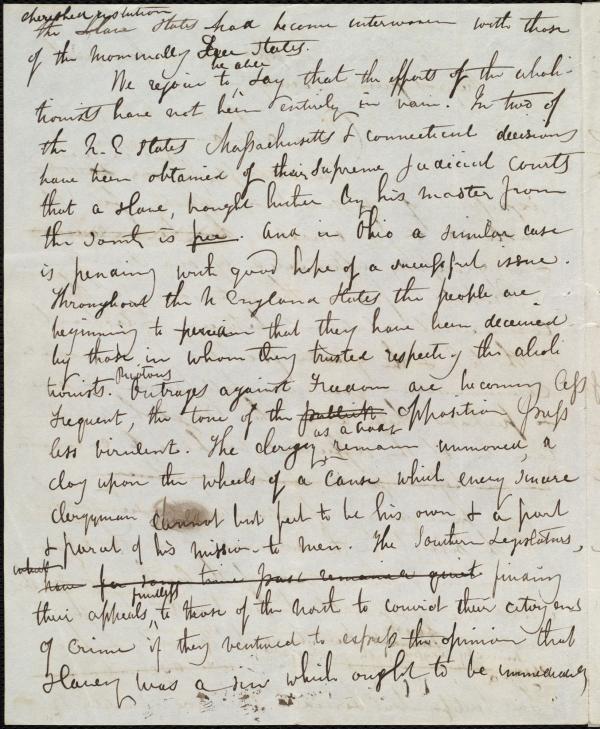 cherished institution
the Slave States had become interwoven with those
of the nominally Free States.
be able
We rejoice to, say that the efforts of the aboli-
tionists have not been entirely in vain. In two of
the N. E States Massachusetts & Connecticut decisions
have been obtained of their Supreme Judicial Courts
that a slave, brought hither by his master from
the South, is free. And in Ohio a similar case
is pending with good hope of a successful issue.
Throughout the N England States the people are
beginning to that they have been deceived
by those in whom they trusted respecting the aboli
tionists. Riotous Outrages against Freedom are becoming less
frequent, the tone of the opposition press
less virulent. The clergy, as a body remain unmoved, a
clog upon the wheels of a cause which every sincere
clergyman cannot but feel to be his own & a part
& parcel of his mission to men. The Southern Legislatures,
which
have for some time past remained quiet finding
fruitless
their appeals, to those of the North to convict their citizens
of crime if they ventured to express the opinion that
Slavery was a sin which ought to be immediately